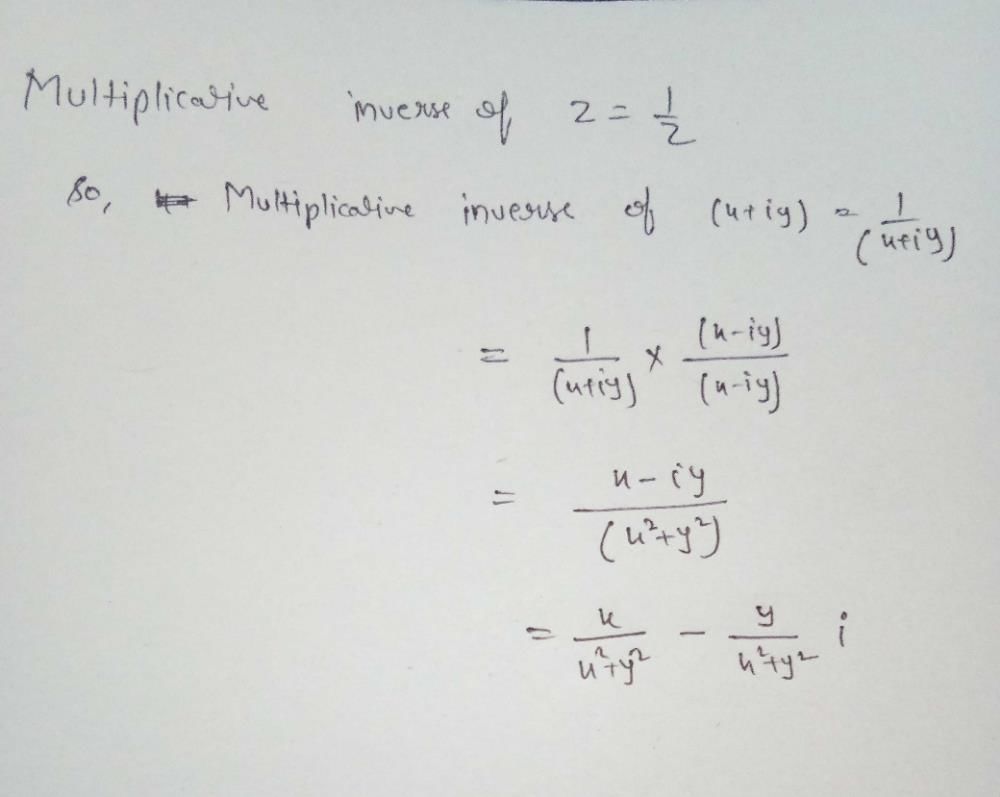 Multiplicative inverse of z = 1/z
So, Multiplicative inverse of (x+iy) = 1/(x+iy)
= 1/(x+iy) × (x-iy)/(x-iy)
= x-iy/(x²+y²)
= x/x²+y² - y/x²+y² i